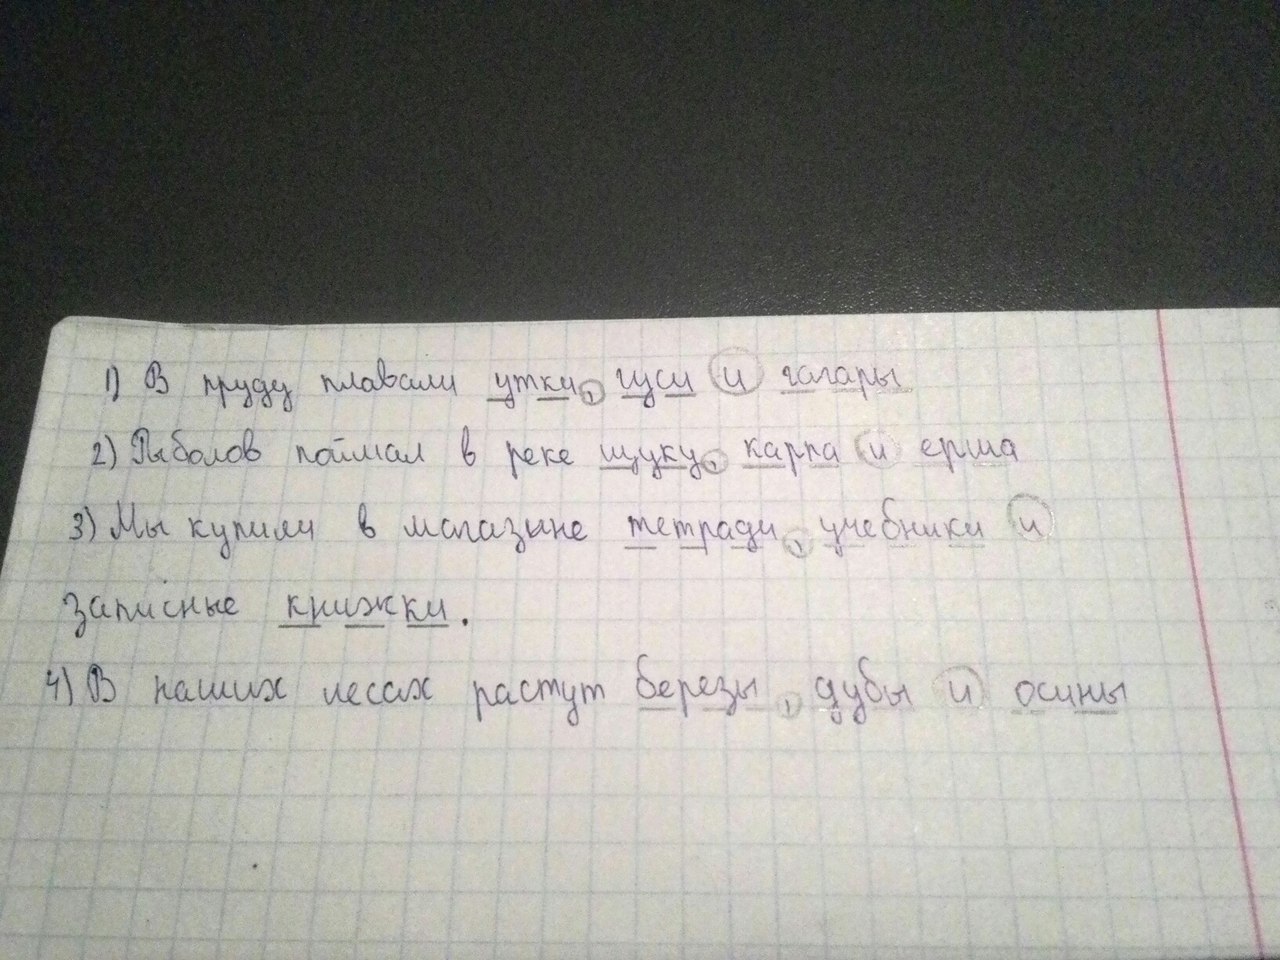 1) В пруду плавали утки, гуси и гагары
2) Рыболов поймал в реке щуку, карпа и ерша
3) Мы купили в магазине тетради, учебники и
записные книжки.
4) В наших лесах растут березы, дубы и осины